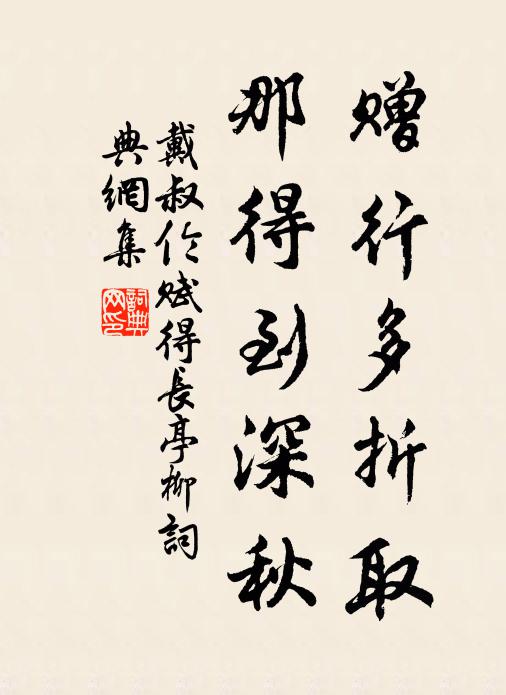 赠行多折取
那得到深秋
戴叔伦赋得長亭柳詞
典網集
詞典网印